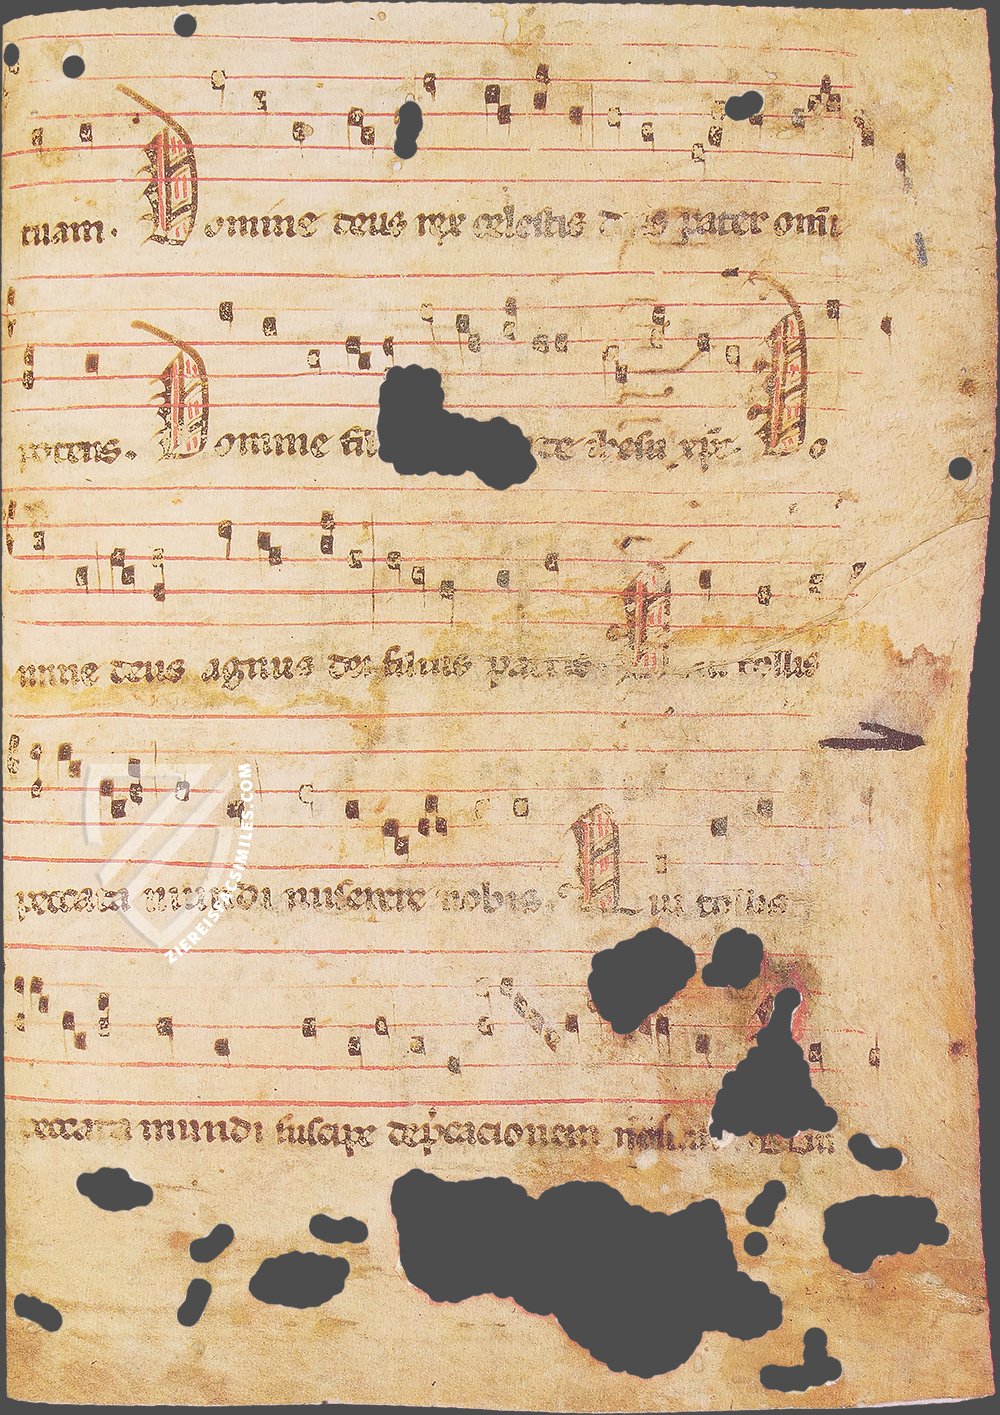 tuam. Domine deus rex celestis d s pater omi
potens. Domine fil te ihesu xpe. Do
mine deus agnus dei filius patris Qui tollis
peccata mundi miserere nobis. Qui tollis
peccata mundi suscipe depcacionem nostram Qui
ZIEREIS FACSIMILES.COM